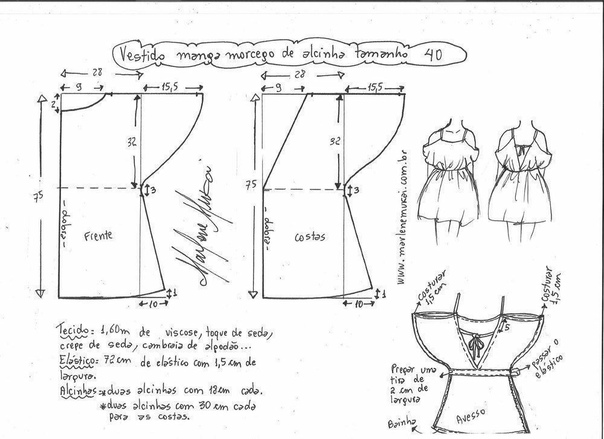 Vestido manga morcego de alcinha tamanho 40
28
9
15,5
2
32
75
3
-dobra-
Frente
1
10
Marlene Mukai
28
9
15,5
32
75
3
-dobra-
costas
1
10
www.marlenemukai.com.br
Tecido: 1,60m de viscose, toque de seda,
crepe de seda, cambraia de algodão...
Elástico: 72cm de elástico com 1,5cm de
largura.
Alcinhas: *duas alcinhas com 18cm cada.
*duas alcinhas com 30 cm cada
para as costas.
costurar
1,5 cm
costurar
1,5 cm
5
passar o
elástico
Prepar uma
tira de
2 cm de
largura
Bainha
Avesso